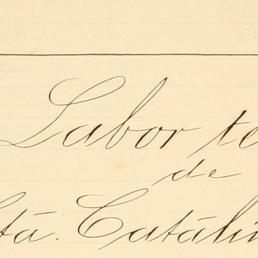 Labor te
de
Stā. Catāli